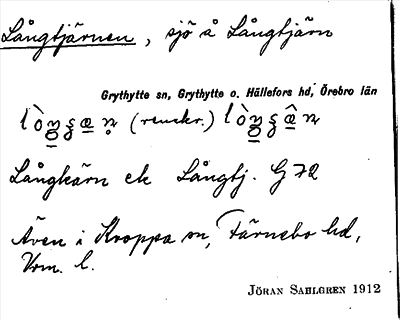 Långtjärnen, sjö å Långtjärn
Grythytte sn, Grythytte o. Hällefors hd, Örebro län
(renskr.)
Långkärn ek Långtj. G 72
Även i Kroppa sn, Färnebo hd,
Vrm. l.
JÖRAN SAHLGREN 1912